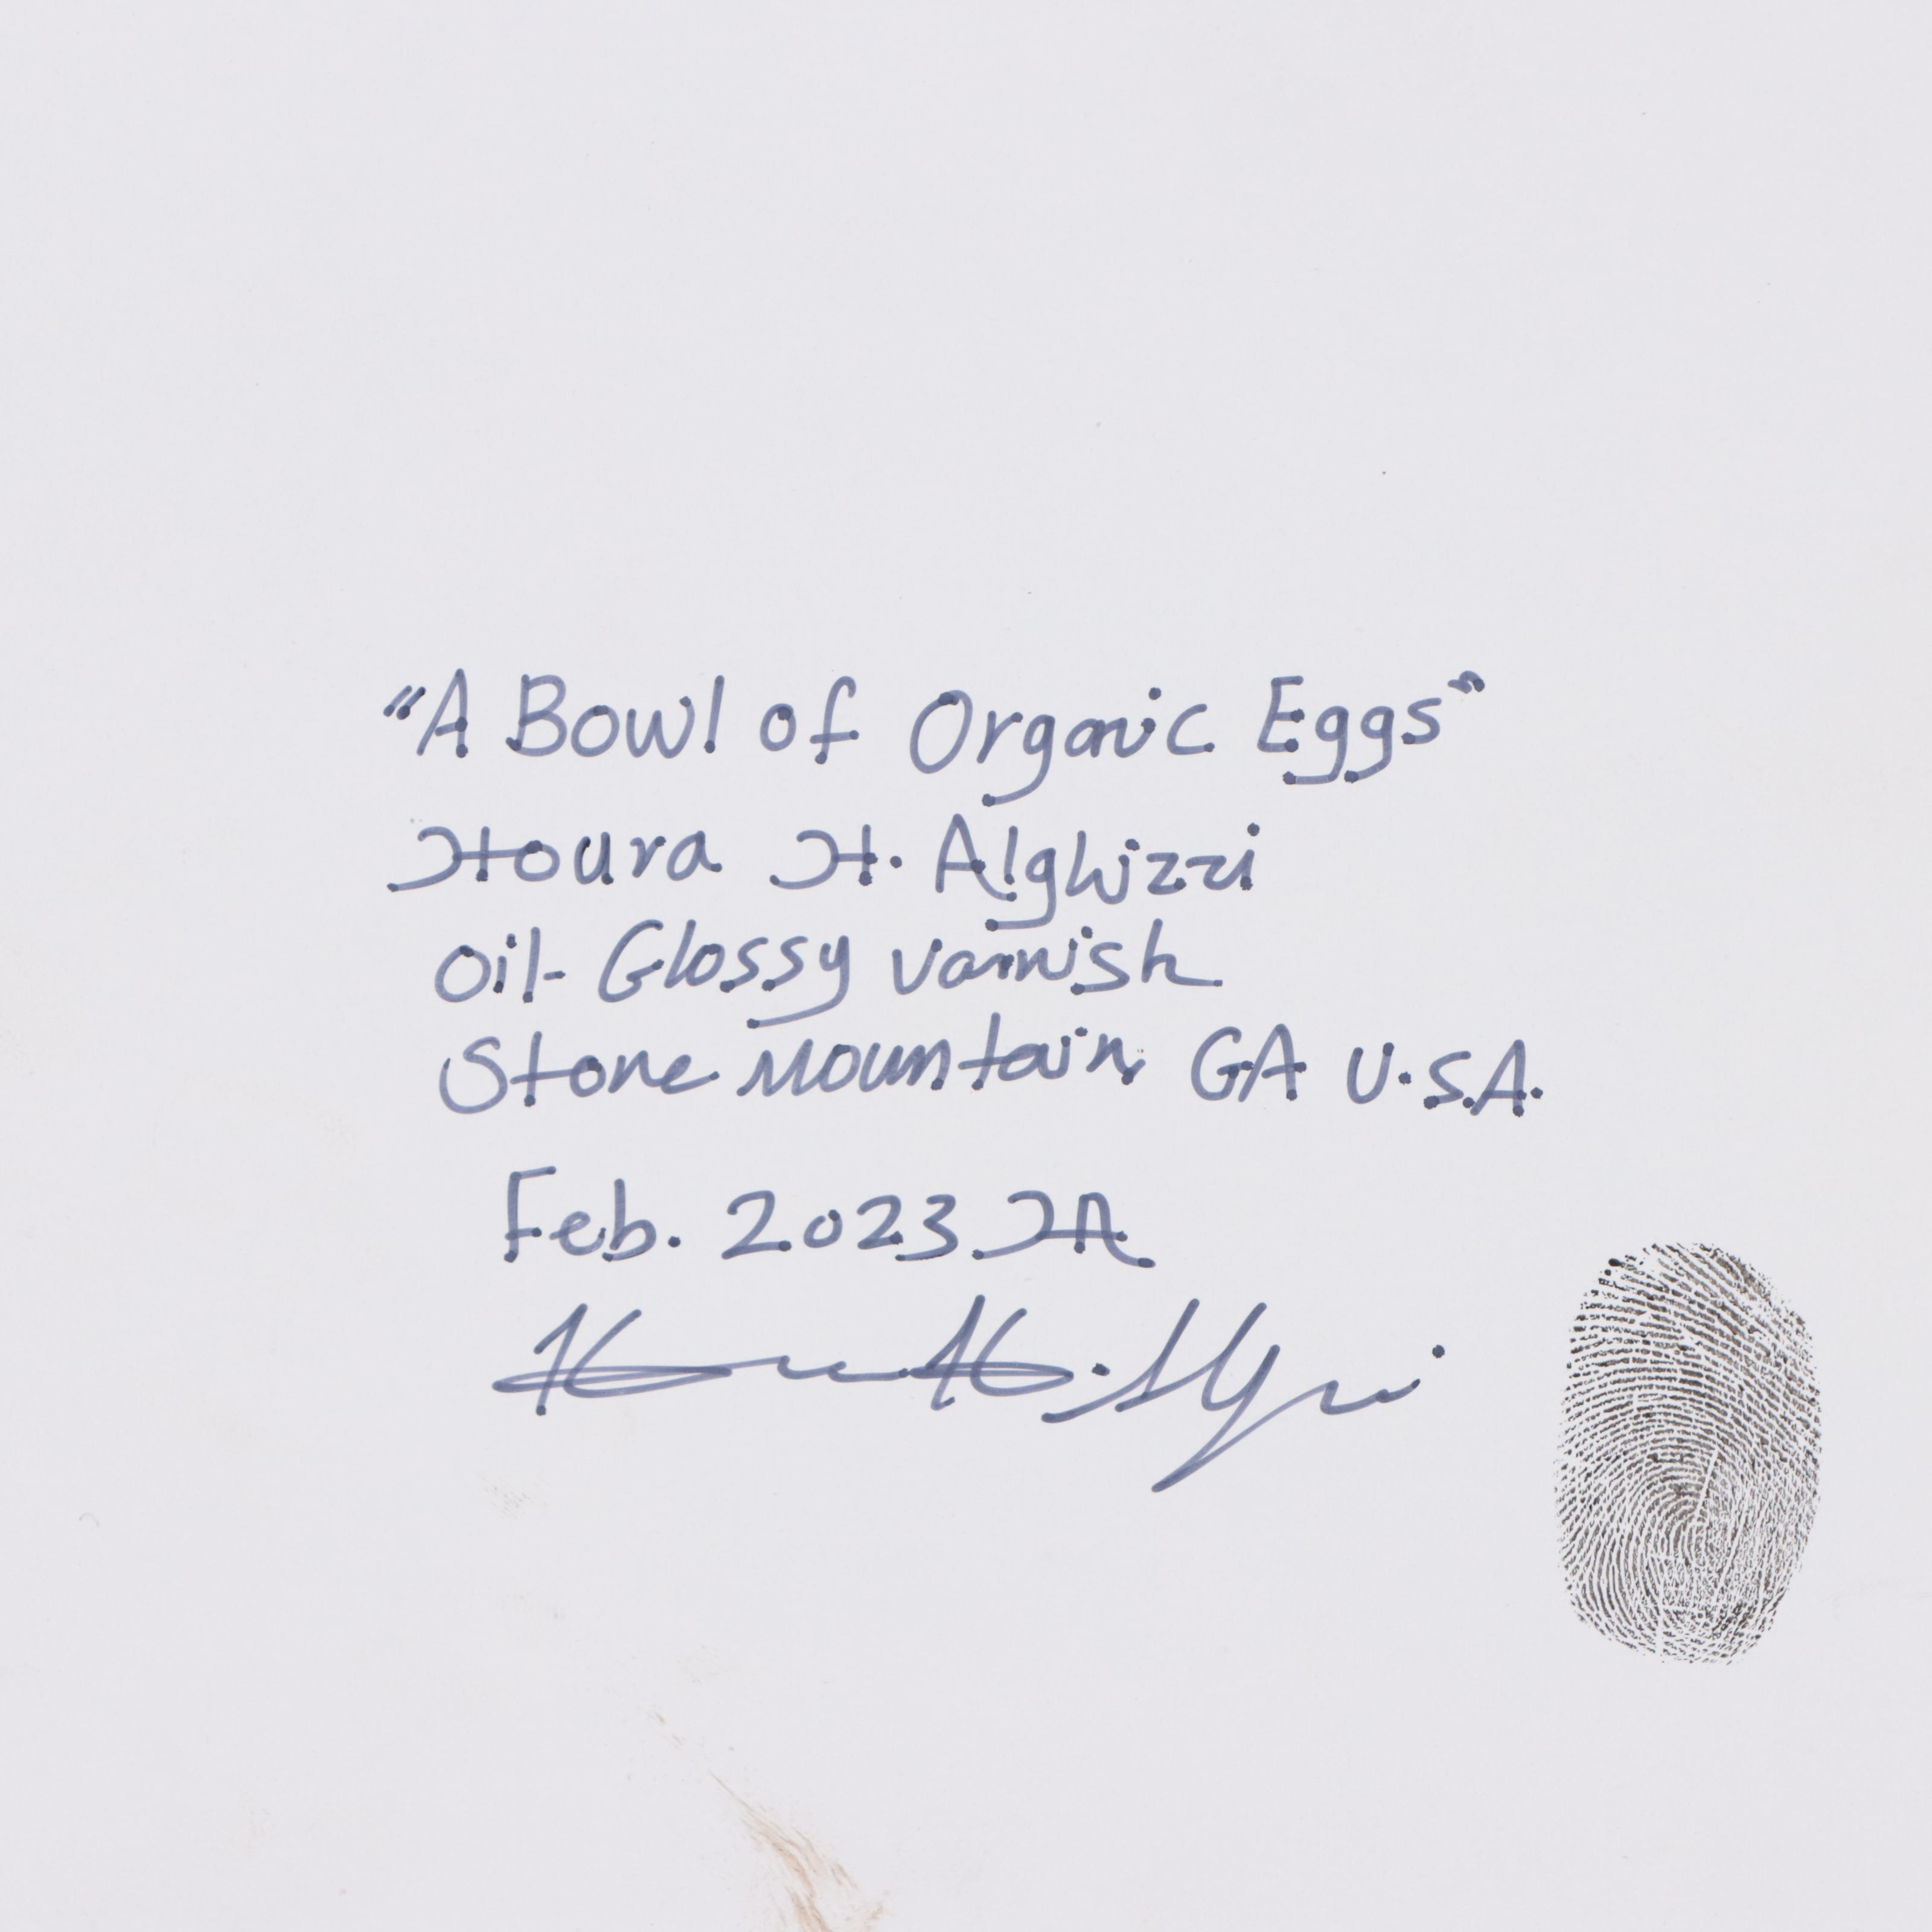 "A Bowl of Organic Eggs"
Houra H. Alghizzi
Oil- Glossy varnish
Stone Mountain GA U.S.A.
Feb. 2023 HA